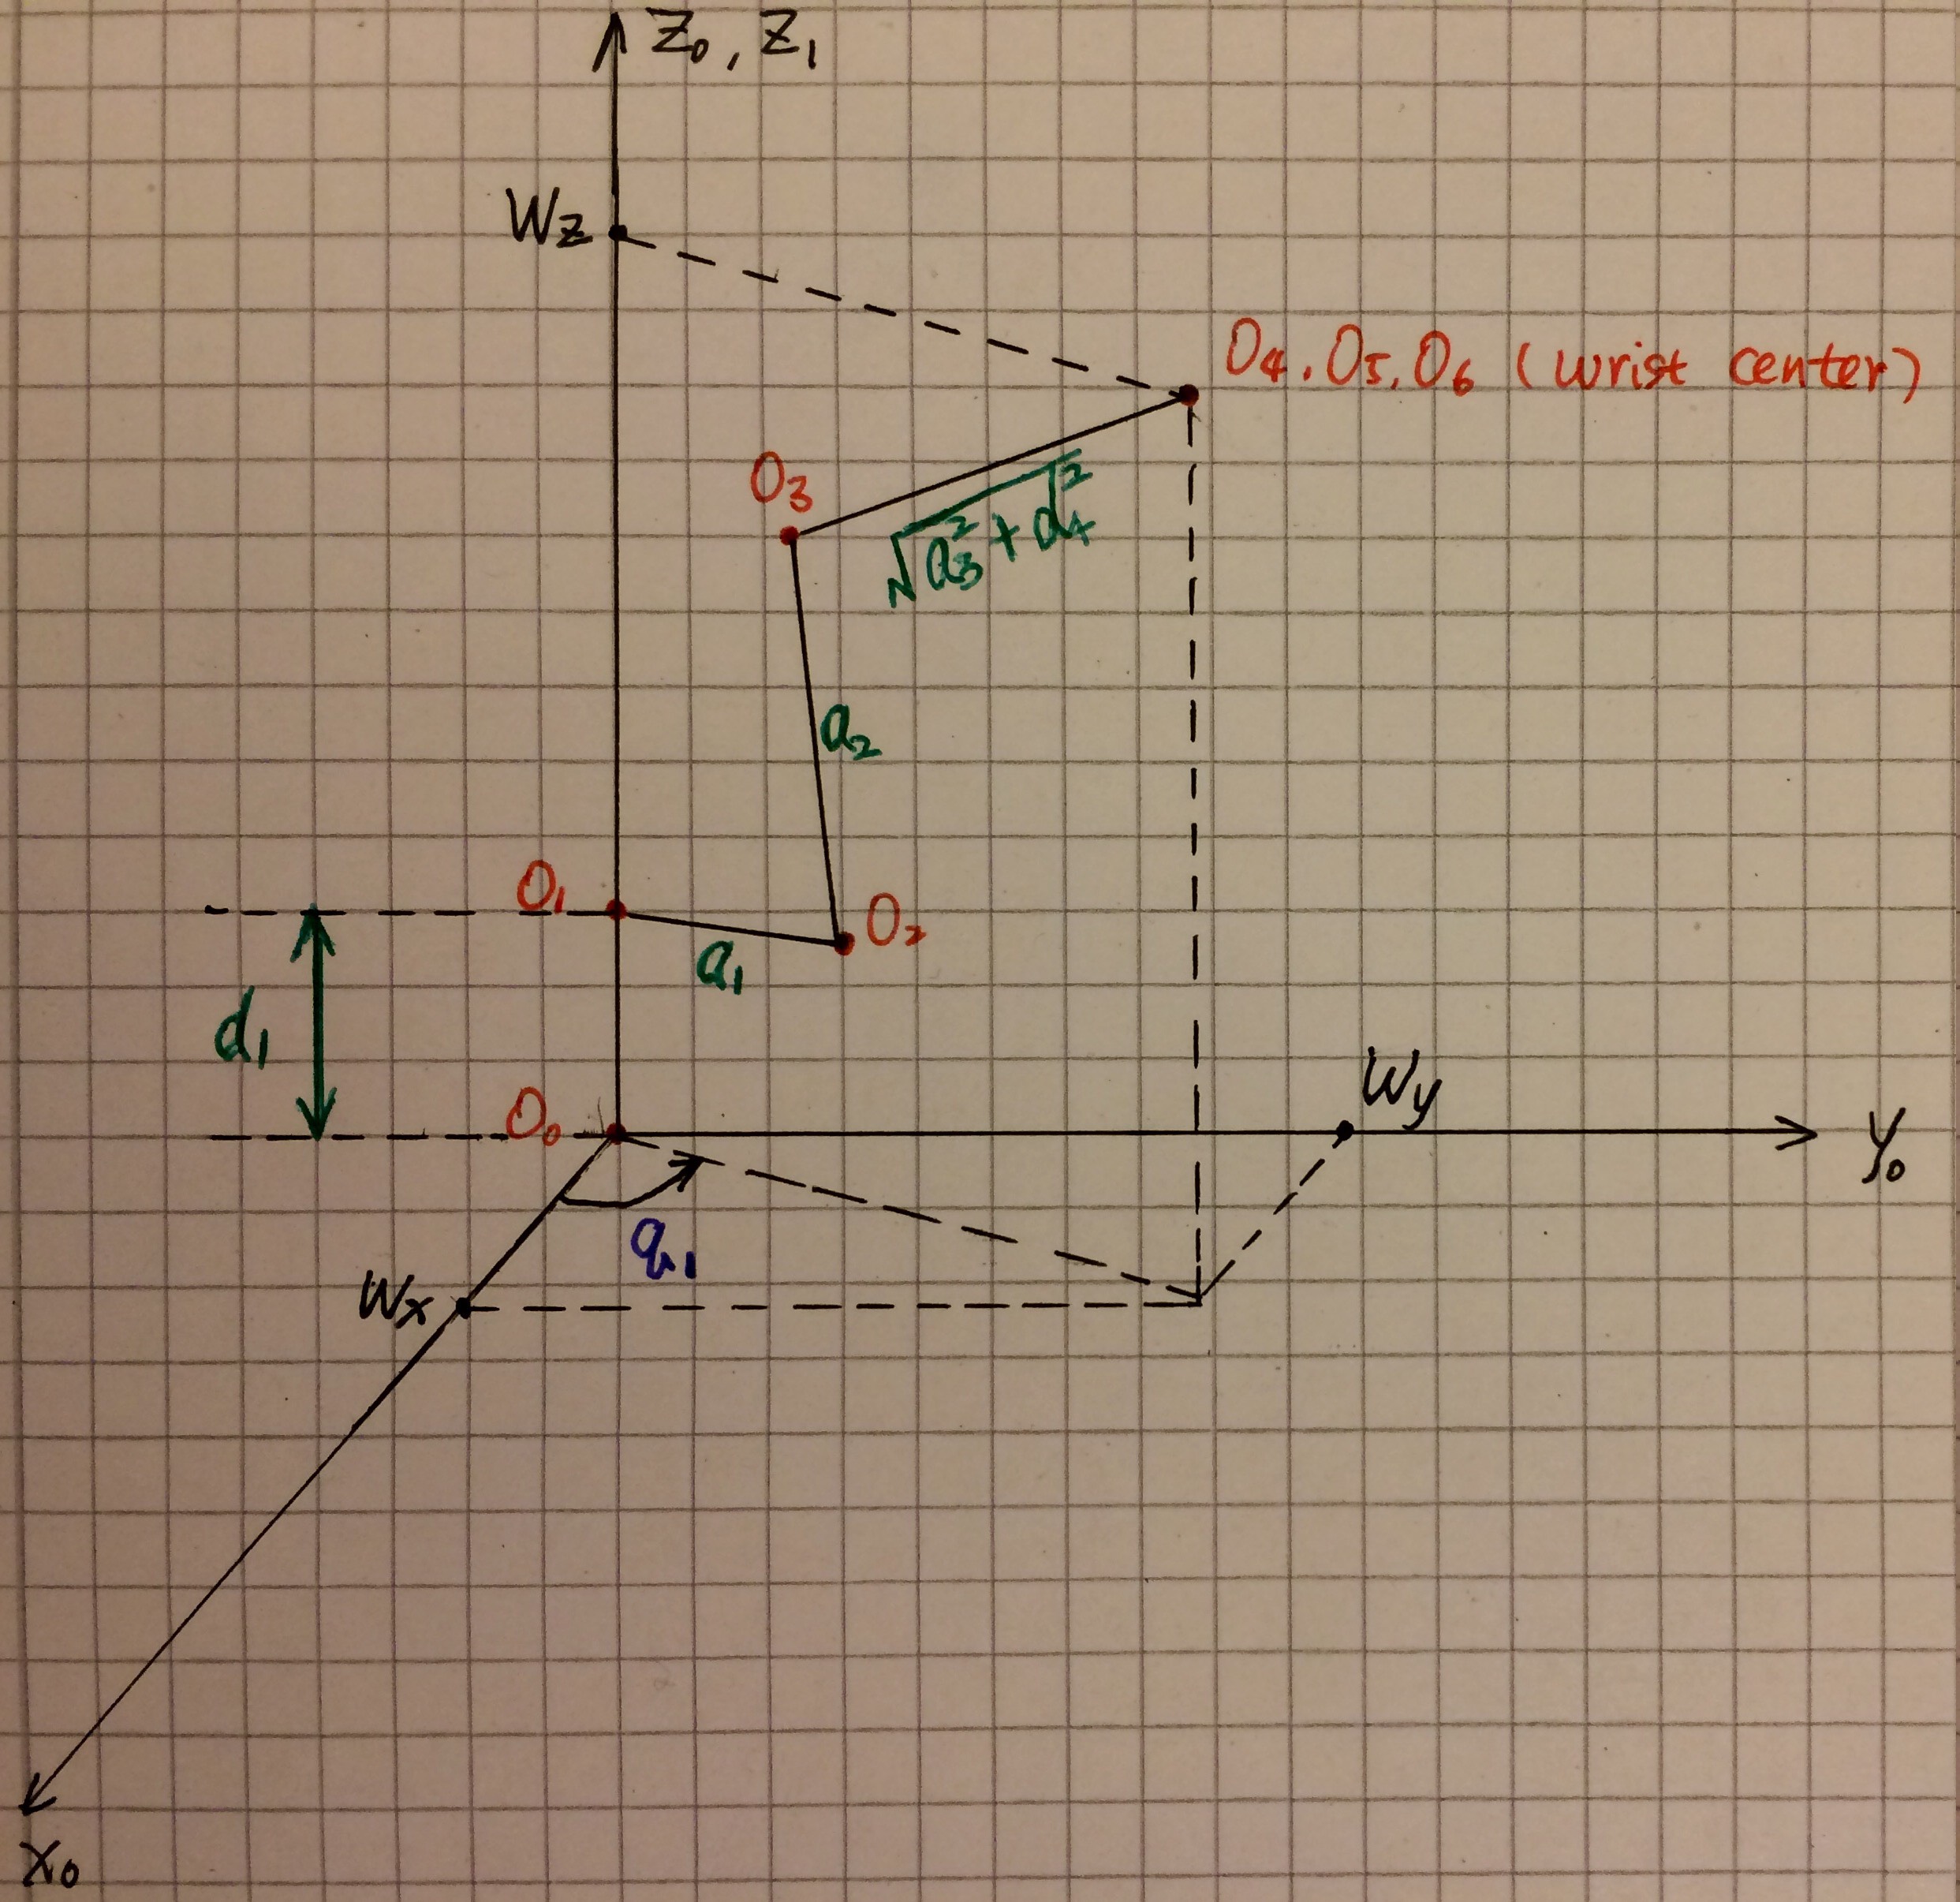 Z₀, Z₁
Wz
O₄, O₅, O₆ (wrist center)
O₃
√a₃² + d₄²
a₂
O₁
O₂
a₁
d₁
O₀
Wy
Y₀
q₁
Wx
X₀